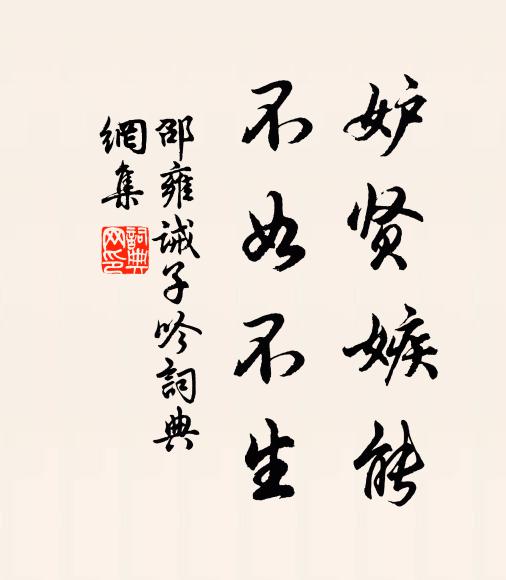 妒贤嫉能
不如不生
邵雍诫子吟詞典
網集
詞典
网印